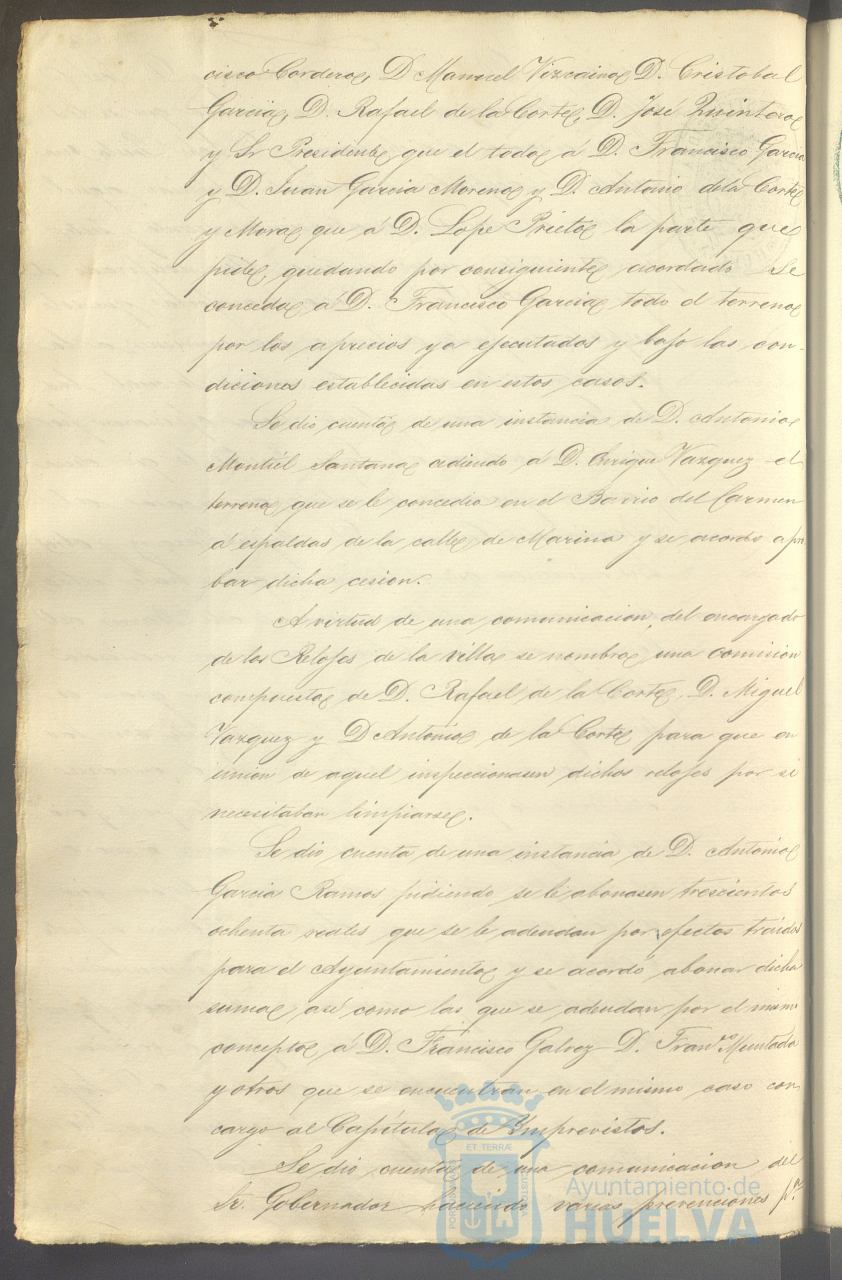 cisco Cordero, D Manuel Vizcaino D. Cristobal
Garcia, D. Rafael de la Corte, D. José Quintero
y Sr Presidente, que el todo á D. Francisco Garcia
y D. Juan Garcia Moreno y D. Antonio de la Corte
y Mora que á D. Lope Prieto la parte que
pide, quedando por consiguiente acordado Se
conceda á D. Francisco Garcia todo el terreno
por los aprecios ya ejecutados y bajo las con-
diciones establecidas en estos casos.
Se dio cuenta de una instancia de D. Antonio
Montiel Santana cediendo á D. Enrique Vazquez el
terreno que se le concedio en el Barrio del Carmen
á espaldas de la calle de Marina y se acordo apro
bar dicha cesion.
A virtud de una comunicacion del encargado
de los Relojes de la villa se nombra una comision
compuesta de D. Rafael de la Corte, D. Miguel
Vazquez y D Antonio de la Corte para que en
union de aquel inspeccionasen dichos relojes por si
necesitaban limpiarse.
Se dio cuenta de una instancia de D. Antonio
Garcia Ramos pidiendo se le abonasen trescientos
ochenta reales que se le adeudan por efectos traidos
para el Ayuntamiento y se acordó abonar dicha
suma, asi como las que se adeudan por el mismo
concepto á D. Francisco Galvez D. Fran.co Muntada
y otros que se encuentran en el mismo caso con
cargo al Capitulo de Imprevistos.
Se dio cuenta de una comunicacion del
Sr. Gobernador haciendo varias prevenciones p.a
ET TERRÆ
Ayuntamiento de
HUELVA